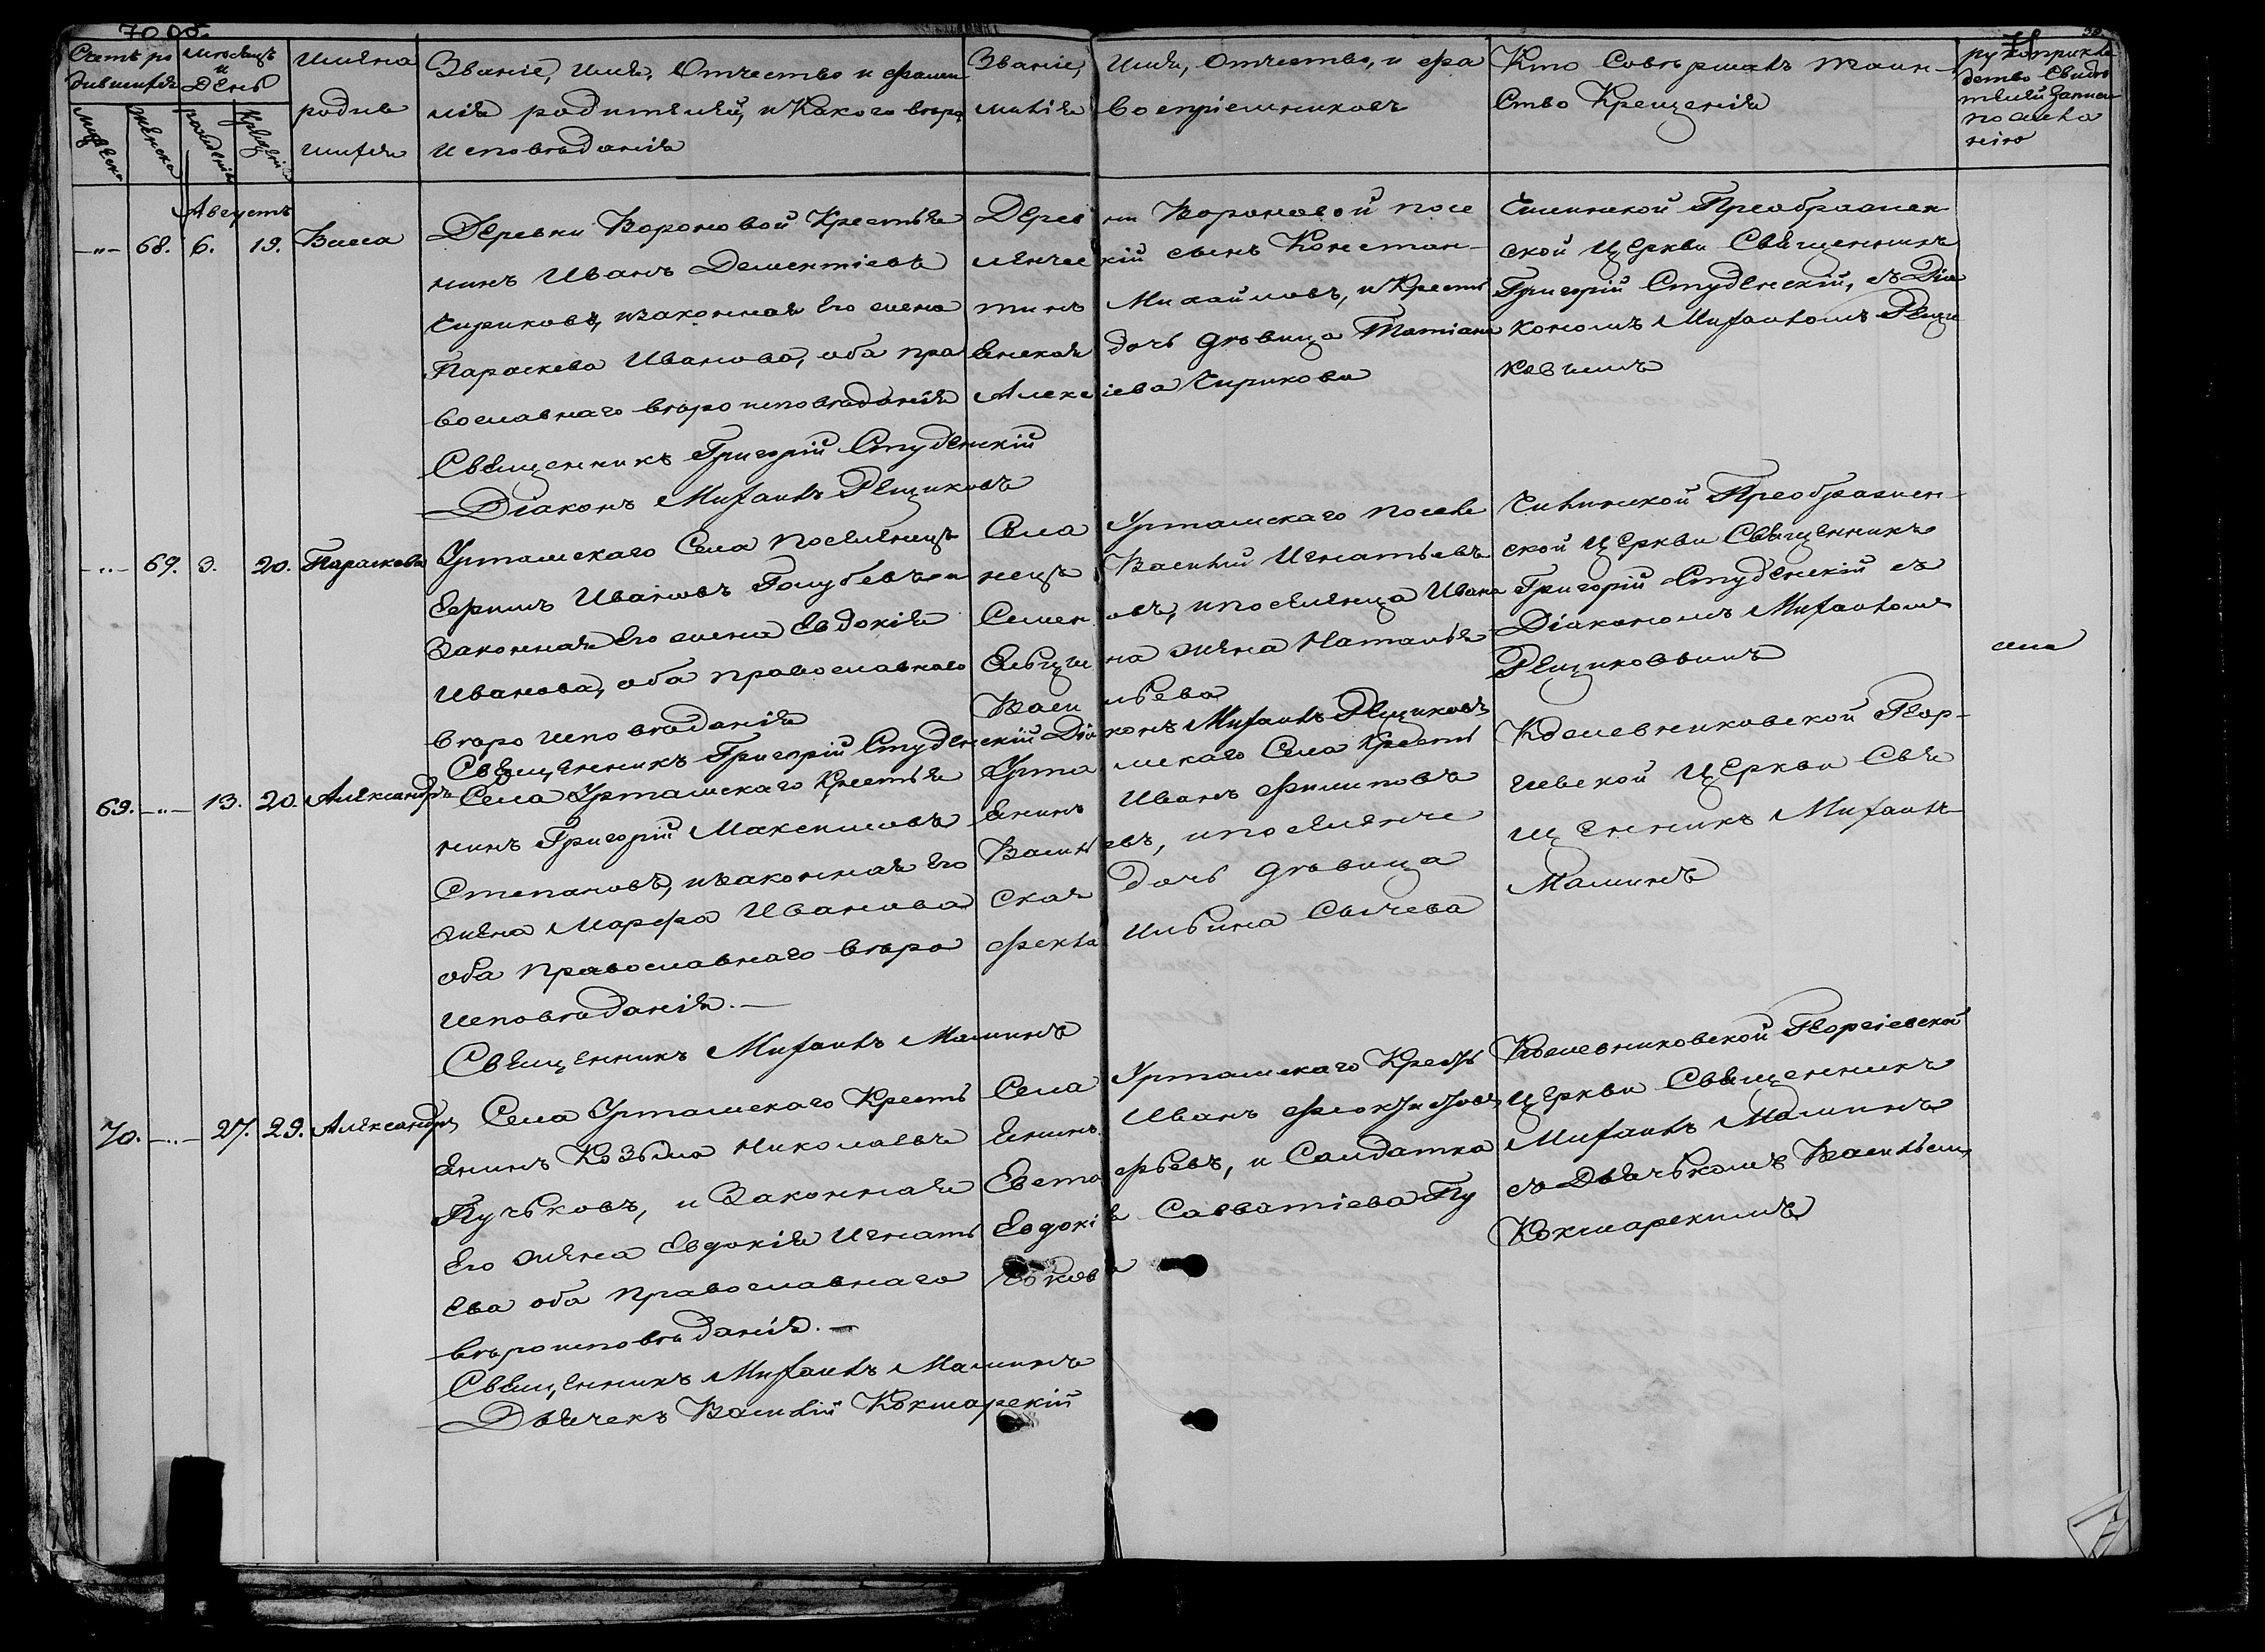 70 об.
71
Счетъ ро
дившихся
Мѣсяцъ
и
День
Мужеска
Женска
рожденія
Крещенія
Имена
родив
шихся
Званіе, Имя, Отчество и фами
лія родителей, и Какого вѣро
исповѣданія
Званіе, Имя, Отчество, и фа
милія Воспріемниковъ
Кто Совершалъ Таин-
Ство Крещенія
рукоприкла
детво Свидѣ
телей записи
по жела
нію
Августъ
-"- 68. 6. 19. Васса
Деревни Вороновой Крестья
нинъ Иванъ Дементіевъ
Чириковъ, изаконная Его жена
Параскева Иванова, оба пра
вославнаго вѣроисповѣданія
Священникъ Григорій Студенскій
Діаконъ Михаилъ Рещиковъ
Дерев ни Вороновой посе
ленчес кій сынъ Констан-
тинъ Михайловъ, и Кресть
Енская дочь дѣвица Татіана
Алекс іева Чирикова
Преображен
ской Церкви Священникъ
Григорій Студенскій, съ Діа
кономъ Михаиломъ Рещи
ковымъ
-"- 69. 3. 20. Параскева
Урташскаго Села Поселенецъ
Ефимъ Ивановъ Голубевъ и
Законная Его жена Евдокія
Иванова, оба православнаго
вѣро исповѣданія
Священникъ Григорій Студенскій Діа конъ Михаилъ Рещиковъ
Села Урташскаго Поселе
нецъ Василій Игнатьевъ
Семен овъ, ипоселенца Ивана
на жена Наталья
Васи льева
Преображен-
ской Церкви Священникъ
Григорій Студенскій съ
Діакономъ Михаиломъ
Рещиковымъ
69. -"- 13. 20. Александръ
Села Урташскаго Крестья
нинъ Григорій Максимовъ
Степановъ, изаконная Его
жена Марфа Иванова
оба Православнаго вѣро
исповѣданія.—
Священникъ Михаилъ Малинъ
Урта шскаго Села Кресть
Енинъ Иванъ Филиповъ
Василь евъ, ипоселенче
ская дочь дѣвица
Фекла Ильина Сычева
Кожевниковской Геор-
гіевской Церкви Свя
щенникъ Михаилъ
Малинъ
70. -"- 27. 29. Александръ
Села Урташскаго Кресть
Енинъ Козьма Николаевъ
Пучьковъ, и Законная
Его жена Евдокія Игнать
Ева оба православнаго
вѣроисповѣданія.—
Священникъ Михаилъ Малинъ
Дьячекъ Василій Кокшарскій
Села Урташскаго Кресть
Енинъ Иванъ Феоктистовъ
Евста фьевъ, и Салдатка
Евдокі я Савватіева Пу
чьков а
Кожевниковской Георгіевской
Церкви Священникъ
Михаилъ Малинъ
съ Дьячькомъ Васильемъ
Кокшарскимъ